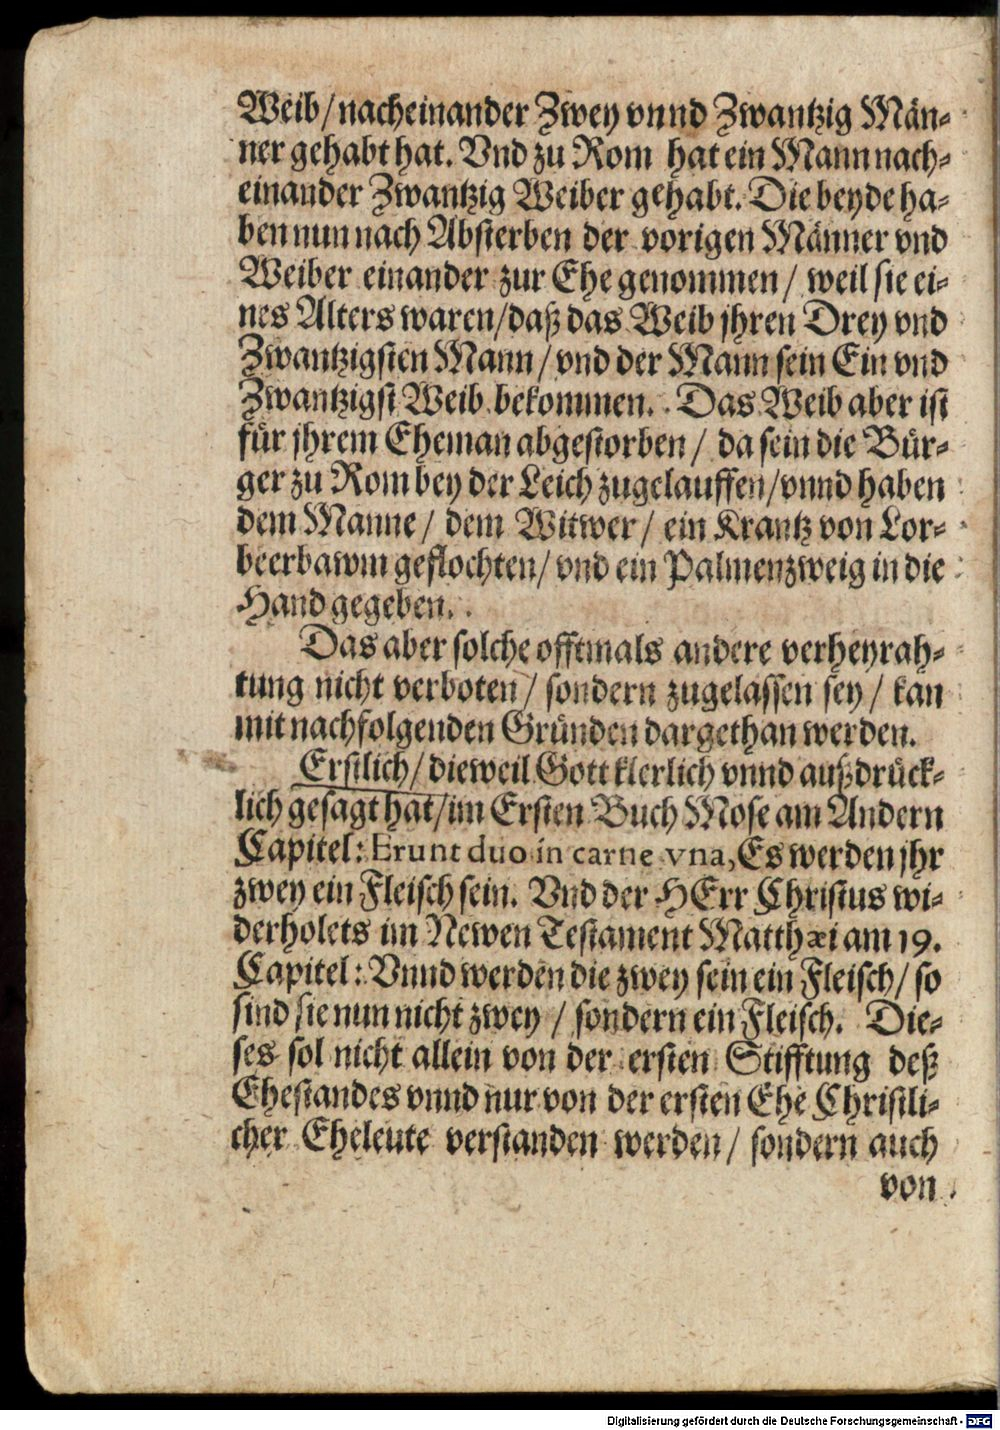 Weib/nacheinander Zwey vnnd Zwantzig Män-
ner gehabt hat. Vnd zu Rom hat ein Mann nach-
einander Zwantzig Weiber gehabt. Die beyde ha-
ben nun nach Absterben der vorigen Männer vnd
Weiber einander zur Ehe genommen / weil sie ei-
nes Alters waren/daß das Weib jhren Drey vnd
Zwantzigsten Mann / vnd der Mann sein Ein vnd
Zwantzigst Weib bekommen. Das Weib aber ist
für jhrem Eheman abgestorben / da sein die Bür-
ger zu Rom bey der Leich zugelauffen/vnnd haben
dem Manne / dem Witwer / ein Krantz von Lor-
beerbawm geflochten/ vnd ein Palmenzweig in die
Hand gegeben.
Das aber solche offtmals andere verheyrah-
tung nicht verboten / sondern zugelassen sey / kan
mit nachfolgenden Gründen dargethan werden.
Erstlich/ dieweil Gott klerlich vnnd außdrück-
lich gesagt hat/im Ersten Buch Mose am Andern
Capitel: Erunt duo in carne vna, Es werden jhr
zwey ein Fleisch sein. Vnd der HErr Christus wi-
derholets im Newen Testament Matthæi am 19.
Capitel: Vnnd werden die zwey sein ein Fleisch/ so
sind sie nun nicht zwey / sondern ein Fleisch. Die-
ses sol nicht allein von der ersten Stifftung deß
Ehestandes vnnd nur von der ersten Ehe Christli-
cher Eheleute verstanden werden/ sondern auch
von
Digitalisierung gefördert durch die Deutsche Forschungsgemeinschaft - DFG